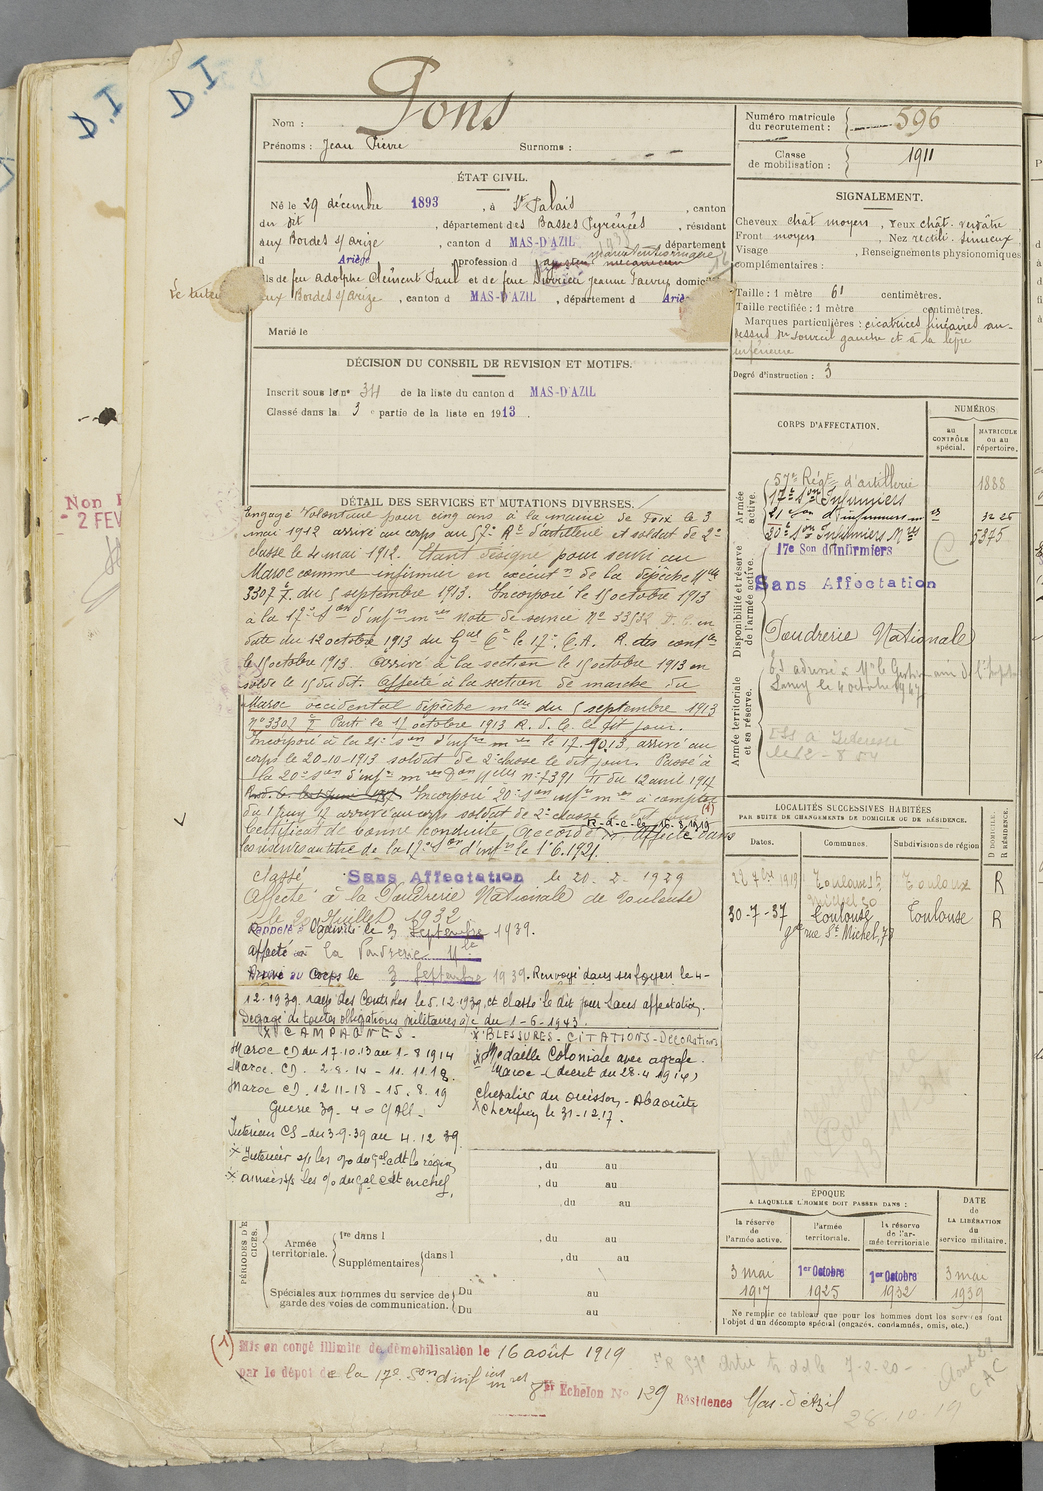 D.I
D.I
Nom : Pons
Prénoms : Jean Pierre Surnoms :
Numéro matricule du recrutement : 596
Classe de mobilisation : 1911
ÉTAT CIVIL.
Né le 29 décembre 1893, à St Palais, canton
du dit, département des Basses Pyrénées, résidant
aux Bordes s/arize, canton d MAS-D'AZIL département
d Ariège, profession d manutentionnaire
fils de feu Adolphe Clément Paul et de feue Jeanne domicilié
aux Bordes s/arize, canton d MAS-D'AZIL, département d Ariè
Marié le
SIGNALEMENT.
Cheveux chât moyen, Yeux chât. verdâtre
Front moyen, Nez rectili. sinueux,
Visage , Renseignements physionomiques
complémentaires :
Taille : 1 mètre 61 centimètres.
Taille rectifiée : 1 mètre centimètres.
Marques particulières : cicatrices linéaires au-
dessus du sourcil gauche et à la lèpre
inférieure
Degré d'instruction : 3
DÉCISION DU CONSEIL DE REVISION ET MOTIFS.
Inscrit sous le n° 34 de la liste du canton d MAS-D'AZIL
Classé dans la 3e partie de la liste en 1913.
DÉTAIL DES SERVICES ET MUTATIONS DIVERSES.
Engagé volontaire pour cinq ans à la mairie de Foix le 3
mai 1912 arrivé au corps au 57e Rt d'artillerie et soldat de 2e
classe le 4 mai 1912. Etant désigné pour servir au
Maroc comme infirmier en exécutn de la dépêche Mlle
3307 7/7. du 5 septembre 1913. Incorporé le 15 octobre 1913
à la 17e Son d'infrs mres note de service N° 33532 D.C. en
date du 12 octobre 1913 du Gal Ct le 17e C.A. R. des contles
le 15 octobre 1913. Arrivé à la section le 15 octobre 1913 en
solde le 15 du dit. Affecté à la section de marche du
Maroc occidental dépêche mlle du 5 septembre 1913
n° 3307 7/7 Parti le 17 octobre 1913 R. d. c. le dit jour.
Incorporé à la 21e Son d'infrs mres le 17.10.13, arrivé au
corps le 20-10-1913 soldat de 2e classe le dit jour. Passé à
la 20e Son d'infrs mres Don Mlle n° 7391 du 12 avril 1917
Incorporé 20e Son infrs mres à compter
du 1 juin 17 arrivé au corps soldat de 2e classe le dit jour (1)
R.d.c. le 16.8.1919
Certificat de bonne conduite accordé. Affecté dans
les réserves au titre de la 17e Son d'infrs le 1.6.1921.
classé Sans Affectation le 20-2-1929
Affecté à la Poudrerie Nationale de Toulouse
le 20 Juillet 1932
Rappelé à l'activité le 3 Septembre 1939.
affecté à la Poudrerie Nle
Arrivé au Corps le 3 Septembre 1939. Renvoyé dans ses foyers le 4-
12-1939. rayé des Contrôles le 5.12.1939, et classé le dit jour sans affectation.
Dégagé de toutes obligations militaires à/c du 1-6-1943.
CAMPAGNES.
Maroc CD du 17.10.13 au 1-8 1914
Maroc. CD. 2-8.14 - 11.11.18.
Maroc CD. 12 11-18 - 15.8.19
Guerre 39-40 c/All.
Intérieur CS - du 3-9.39 au 4.12 39.
x Intérieur s/s les o/ du Gal cdt la région
x armée s/s les o/ du gal cdt en chef,
x BLESSURES - CITATIONS - DÉCORATIONS
Médaille Coloniale avec agrafe
Maroc - (décret du 28-4 1914)
chevalier du ouissam - Alaouite
chérifien le 31-12.17.
, du au
, du au
, du au
PÉRIODES D'EXERCICES.
Armée territoriale. 1re dans l , du au
Supplémentaires dans l , du au
Spéciales aux hommes du service de garde des voies de communication. Du au
Du au
CORPS D'AFFECTATION.
NUMÉROS
au CONTRÔLE spécial.
MATRICULE ou au répertoire.
Armée active.
57e Régt d'artillerie 1888
17e Son Infirmiers
21e Son d'infirmiers mres 3225
20e Son Infirmiers Mres 5345
Disponibilité et réserve de l'armée active.
17e Son d'Infirmiers C
Sans Affectation
Poudrerie Nationale
Armée territoriale et sa réserve.
LOCALITÉS SUCCESSIVES HABITÉES
PAR SUITE DE CHANGEMENTS DE DOMICILE OU DE RÉSIDENCE.
Dates. Communes. Subdivisions de région D DOMICILE. R RÉSIDENCE.
1919 Toulouse Toulouse R
30-7-37 Toulouse Toulouse R
gde rue St Michel, 73
ÉPOQUE
A LAQUELLE L'HOMME DOIT PASSER DANS :
DATE de LA LIBÉRATION du service militaire.
la réserve de l'armée active.
l'armée territoriale.
la réserve de l'armée territoriale
3 mai 1917
1er Octobre 1925
1er Octobre 1932
3 mai 1939
Ne remplir ce tableau que pour les hommes dont les services font
l'objet d'un décompte spécial (engagés, condamnés, omis, etc.)
(1) Mis en congé illimité de démobilisation le 16 août 1919
par le dépôt de la 17e Son d'infiers mres 8e Echelon N° 129 Résidence Mas-d'Azil
28.10.19